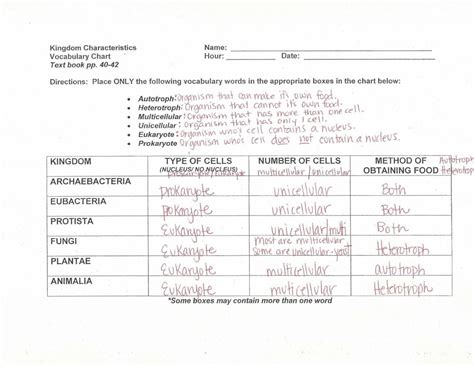 Kingdom Characteristics Name:
Vocabulary Chart Hour: Date:
Text book pp. 40-42
Directions: Place ONLY the following vocabulary words in the appropriate boxes in the chart below:
• Autotroph: Organism that can make its own food.
• Heterotroph: Organism that cannot its own food.
• Multicellular: Organism that has more than one cell.
• Unicellular: Organism that has only 1 cell.
• Eukaryote: Organism who's cell contains a nucleus.
• Prokaryote Organism who's cell does not contain a nucleus.
KINGDOM TYPE OF CELLS NUMBER OF CELLS METHOD OF Autotroph
(NUCLEUS/ NO NUCLEUS) OBTAINING FOOD Heterotroph
prokaryote/eukaryote multicellular/unicellular
ARCHAEBACTERIA prokaryote unicellular Both
EUBACTERIA prokaryote unicellular Both
PROTISTA Eukaryote unicellular/muti Both
FUNGI Eukaryote most are multicellular Heterotroph
some are unicellular-yeast
PLANTAE Eukaryote multicellular autotroph
ANIMALIA Eukaryote muticellular Heterotroph
*Some boxes may contain more than one word